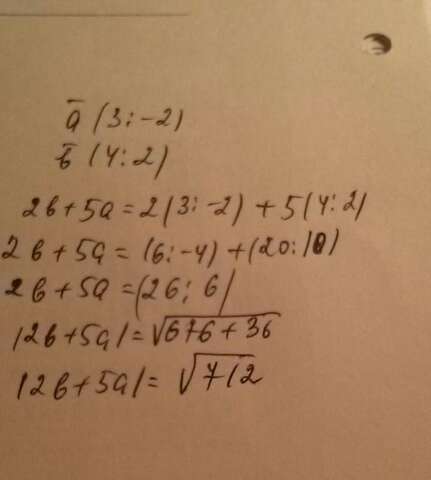 a̅ (3; -2)
b̅ (4; 2)
2b + 5a = 2(3; -2) + 5(4; 2)
2b + 5a = (6; -4) + (20; 10)
2b + 5a = (26; 6)
|2b + 5a| = √676 + 36
|2b + 5a| = √712